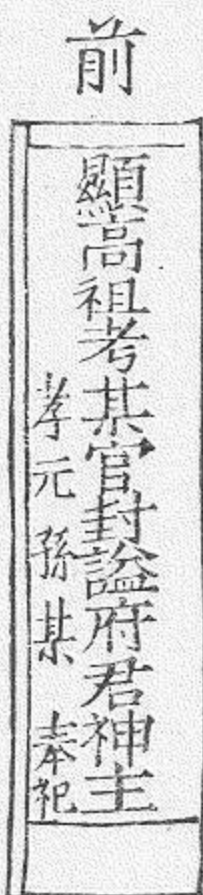 前
顯高祖考某官封謚府君神主
孝元孫某 奉祀